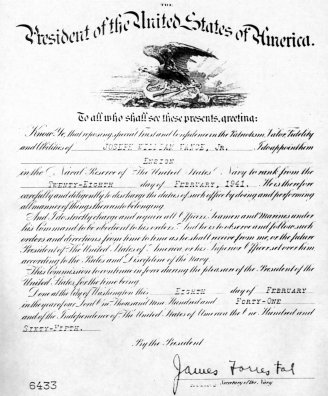 THE
President of the United States of America.
To all who shall see these presents, greeting:
Know Ye, that reposing special Trust and Confidence in the Patriotism, Valor, Fidelity
and Abilities of JOSEPH WILLIAM Jr. I do appoint him
ENSIGN
in the Naval Reserve of The United States Navy to rank from the
TWENTY-EIGHTH day of FEBRUARY, 1941. He is therefore
carefully and diligently to discharge the duties of such office by doing and performing
all manner of things thereunto belonging.
And I do strictly charge and require all Officers, Seamen and Marines under
his Command to be obedient to his orders. And he is to observe and follow such
orders and directions from time to time as he shall receive from me, or the future
President of The United States of America, or his Superior Officer set over him
according to the Rules and Discipline of the Navy.
This Commission to continue in force during the pleasure of the President of the
United States for the time being.
Done at the City of Washington this EIGHTH day of FEBRUARY
in the year of our Lord One Thousand Nine Hundred and FORTY-ONE
and of the Independence of The United States of America the One Hundred and
SIXTY-FIFTH.
By the President
James Forrestal
Secretary of the Navy
6433